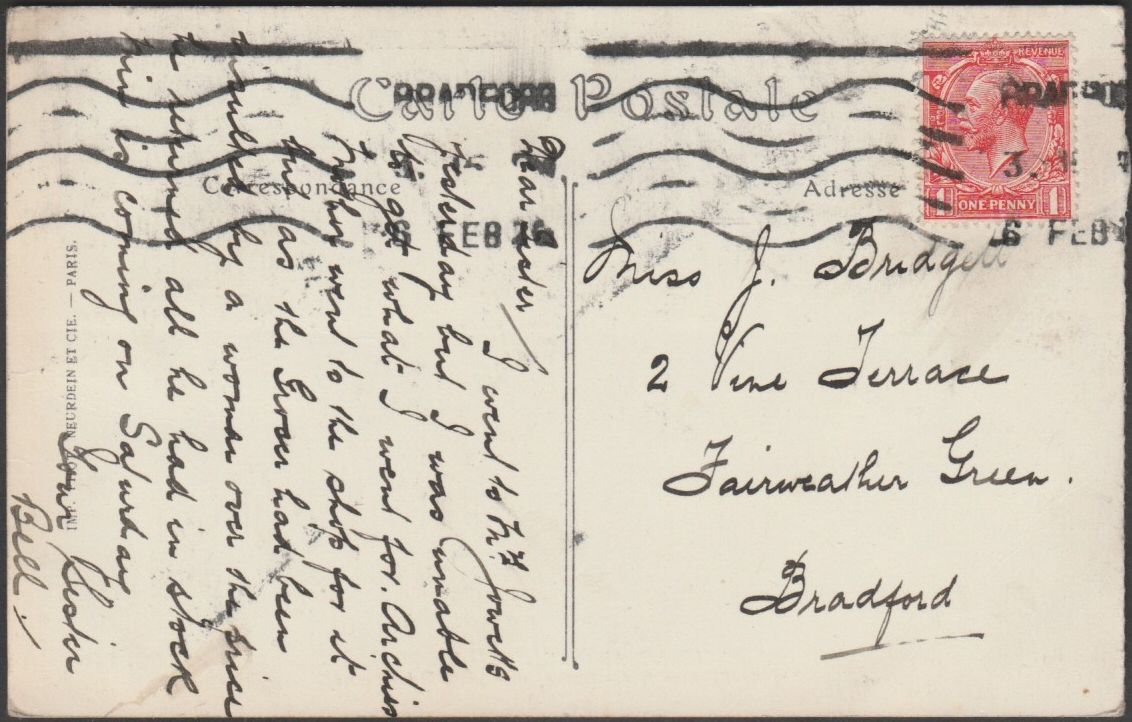 Carte Postale
Correspondance
Adresse
REVENUE
1 ONE PENNY 1
BRADFORD
6 FEB
BRADFORD
6 FEB
Dear Sister
I went to Mrs Jowetts
yesterday but I was unable
to get what I went for. Archies
Mother went to the shop for it
but as the Grocer had been
insulted by a woman over the price
he returned all he had in stock
him is coming on Saturday
Your Sister
Bell.
Miss J. Bridgett
2 Vine Terrace
Fairweather Green.
Bradford
NEURDEIN ET CIE. — PARIS.